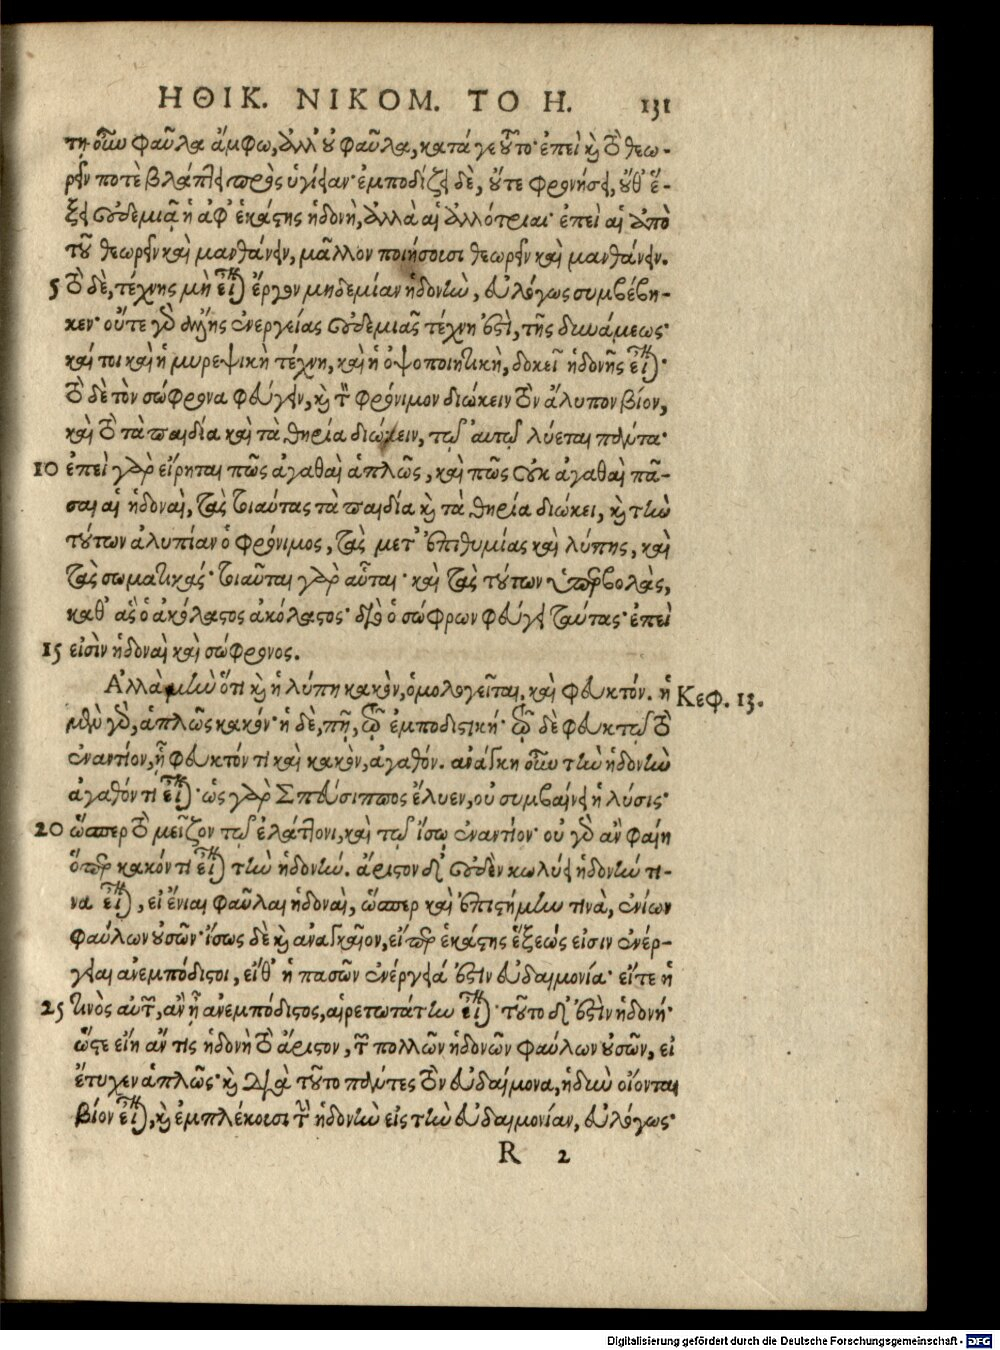 ΗΘΙΚ. ΝΙΚΟΜ. ΤΟ Η. 131
τῃ οὖν φαῦλα ἄμφω, ἀλλ' οὐ φαῦλα, κατά γε τοῦτο· ἐπεὶ καὶ τὸ θεω-
ρεῖν ποτὲ βλάπτει πρὸς ὑγίειαν· ἐμποδίζει δὲ, οὔτε φρονήσει, οὔθ' ἕ-
ξει οὐδεμιᾷ ἡ ἀφ' ἑκάστης ἡδονὴ, ἀλλὰ αἱ ἀλλότριαι· ἐπεὶ αἱ ἀπὸ
τοῦ θεωρεῖν καὶ μανθάνειν, μᾶλλον ποιήσουσι θεωρεῖν καὶ μανθάνειν.
5 τὸ δὲ, τέχνης μὴ εἶναι ἔργον μηδεμίαν ἡδονὴν, εὐλόγως συμβέβη-
κεν· οὔτε γὰρ ἄλλης ἐνεργείας οὐδεμιᾶς τέχνη ἐστὶ, τῆς δυνάμεως·
καί τοι καὶ ἡ μυρεψικὴ τέχνη, καὶ ἡ ὀψοποιητικὴ, δοκεῖ ἡδονῆς εἶναι·
τὸ δὲ τὸν σώφρονα φεύγειν, καὶ τὸν φρόνιμον διώκειν τὸν ἄλυπον βίον,
καὶ τὸ τὰ παιδία καὶ τὰ θηρία διώκειν, τῷ αὐτῷ λύεται πάντα·
10 ἐπεὶ γὰρ εἴρηται πῶς ἀγαθαὶ ἁπλῶς, καὶ πῶς οὐκ ἀγαθαὶ πᾶ-
σαι αἱ ἡδοναὶ, τὰς τοιαύτας τὰ παιδία καὶ τὰ θηρία διώκει, καὶ τὴν
τούτων ἀλυπίαν ὁ φρόνιμος, τὰς μετ' ἐπιθυμίας καὶ λύπης, καὶ
τὰς σωματικάς· τοιαῦται γὰρ αὗται· καὶ τὰς τούτων ὑπερβολὰς,
καθ' ἃς ὁ ἀκόλαστος ἀκόλαστος· διὸ ὁ σώφρων φεύγει ταύτας· ἐπεὶ
15 εἰσὶν ἡδοναὶ καὶ σώφρονος.
Ἀλλὰ μὴν ὅτι καὶ ἡ λύπη κακὸν, ὁμολογεῖται, καὶ φευκτόν. ἡ Κεφ. 13.
μὲν γὰρ, ἁπλῶς κακόν· ἡ δὲ, πῇ, τῷ ἐμποδιστική· τῷ δὲ φευκτῷ τὸ
ἐναντίον, ᾗ φευκτόν τι καὶ κακὸν, ἀγαθόν. ἀνάγκη οὖν τὴν ἡδονὴν
ἀγαθόν τι εἶναι· ὡς γὰρ Σπεύσιππος ἔλυεν, οὐ συμβαίνει ἡ λύσις·
20 ὥσπερ τὸ μεῖζον τῷ ἐλάττονι, καὶ τῷ ἴσῳ ἐναντίον· οὐ γὰρ ἂν φαίη
ὅπερ κακόν τι εἶναι τὴν ἡδονήν. ἄριστον δ' οὐδὲν κωλύει ἡδονήν τι-
να εἶναι, εἰ ἔνιαι φαῦλαι ἡδοναὶ, ὥσπερ καὶ ἐπιστήμην τινὰ, ἐνίων
φαύλων οὐσῶν· ἴσως δὲ καὶ ἀναγκαῖον, εἴπερ ἑκάστης ἕξεώς εἰσιν ἐνέρ-
γειαι ἀνεμπόδιστοι, εἴθ' ἡ πασῶν ἐνέργειά ἐστιν εὐδαιμονία· εἴτε ἡ
25 τινὸς αὐτῶν, ἂν ᾖ ἀνεμπόδιστος, αἱρετωτάτην εἶναι· τοῦτο δ' ἐστὶν ἡδονή·
ὥστε εἴη ἄν τις ἡδονὴ τὸ ἄριστον, τῶν πολλῶν ἡδονῶν φαύλων οὐσῶν, εἰ
ἔτυχεν ἁπλῶς· καὶ διὰ τοῦτο πάντες τὸν εὐδαίμονα, ἡδὺν οἴονται
βίον εἶναι, καὶ ἐμπλέκουσι τὴν ἡδονὴν εἰς τὴν εὐδαιμονίαν, εὐλόγως·
R 2
Digitalisierung gefördert durch die Deutsche Forschungsgemeinschaft - DFG